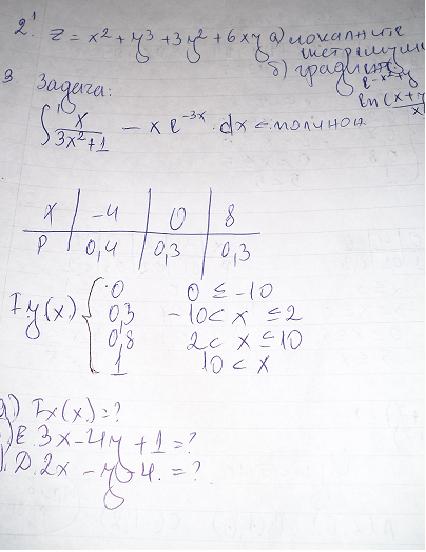 2. z = x² + y³ + 3y² + 6xy а) локалните
екстремуми
б) градиент
e^-x²y
ln(x+y
3 Задача:
∫ x/(3x²+1) - x e^-3x dx
x | -4 | 0 | 8
P | 0,4 | 0,3 | 0,3
Fy(x) { 0 0 ≤ -10
0,3 -10 < x ≤ 2
0,8 2 < x ≤ 10
1 10 < x
Fx(x) = ?
E. 3x - 4y + 1 = ?
D. 2x - y - 4. = ?